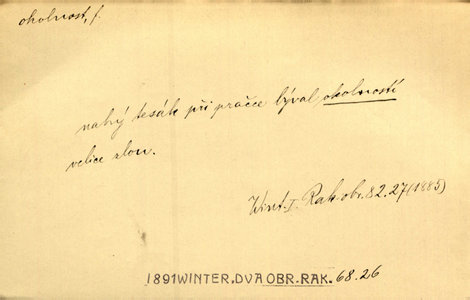 okolnost, f.
nahý tesák při pračce býval okolností
velice zlou.
Wint. I. Rak. obr. 82.27 (1885)
1891WINTER, DVA OBR. RAK. 68.26